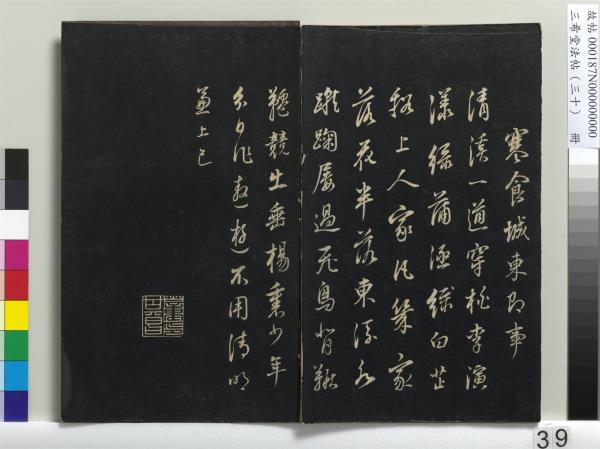 故帖 000187N000000000
三希堂法帖（三十） 冊
寒食城東即事
清溪一道穿桃李演
漾綠蒲涵綠白芷
溪上人家凡幾家
落花半落東流水
蹴踘屢過飛鳥背鞦
韆競出垂楊裏少年
分日作遨遊不用清明
兼上巳
39